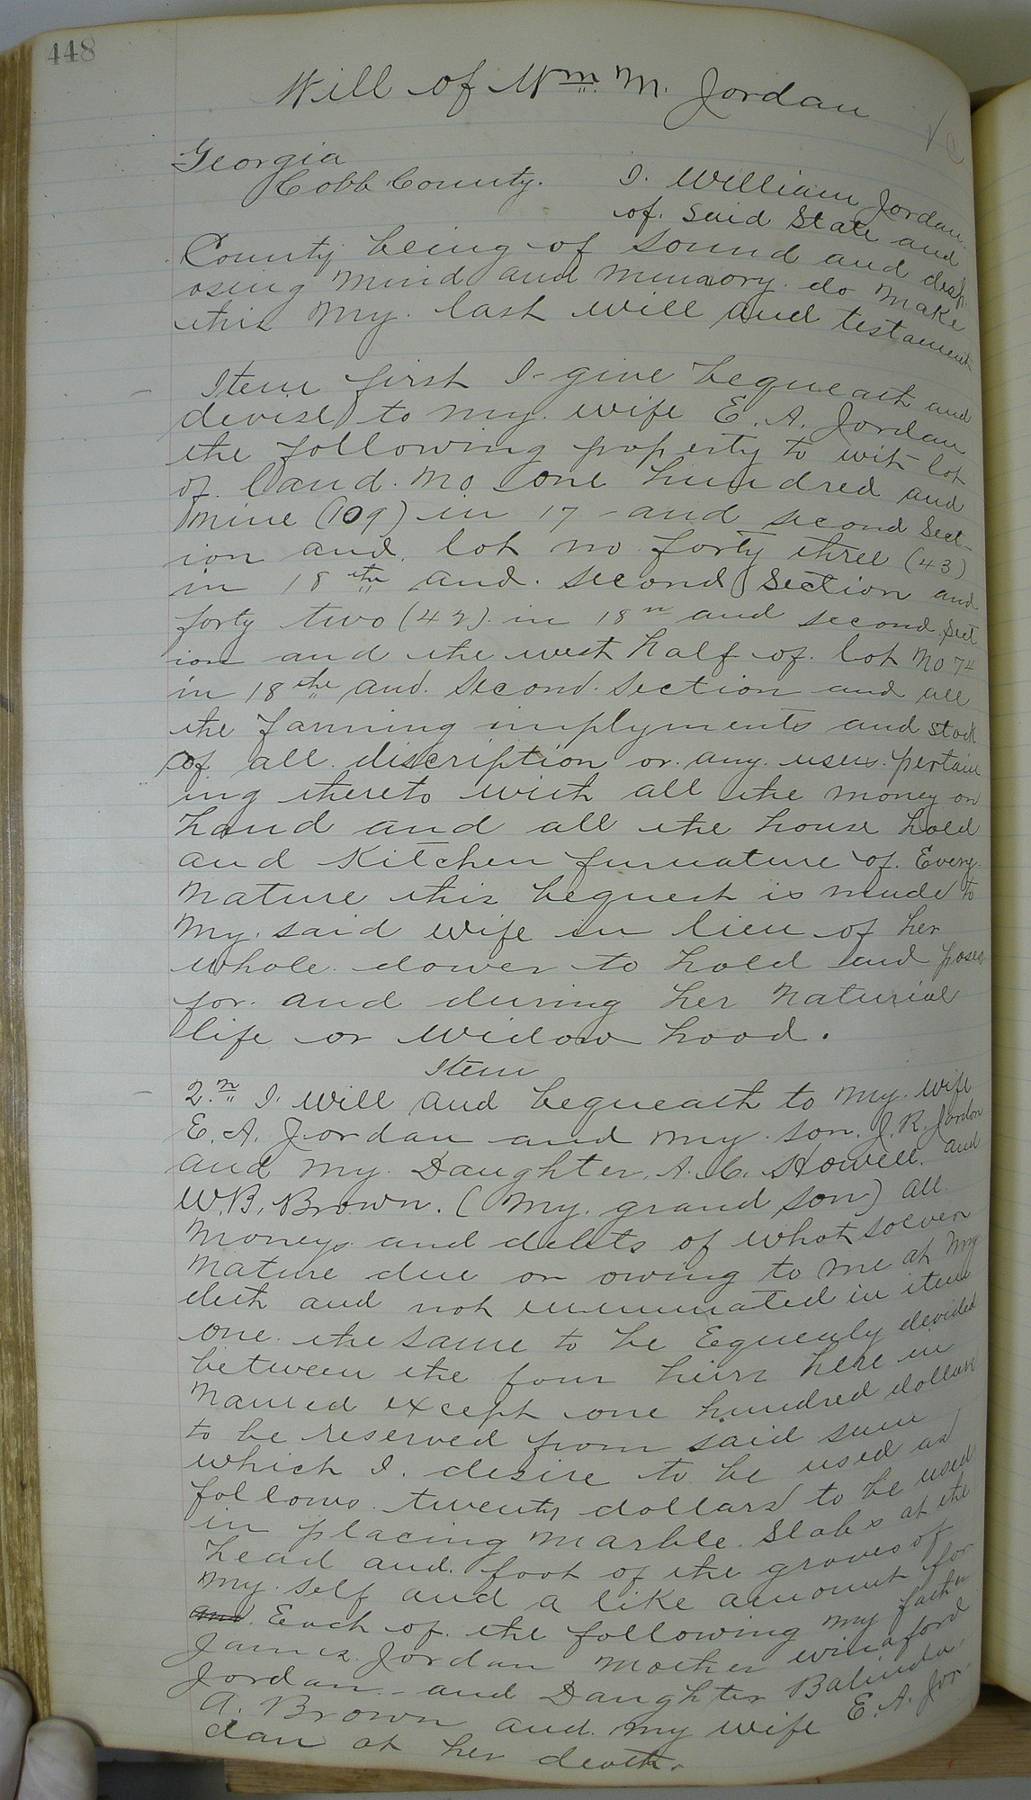 448
Will of Wm. M. Jordan
Georgia
Cobb County. I. William Jordan
of. said State and
County being of sound and disp
osing mind and memory. do make
this my. last will and testament
Item first I give bequeath and
devise to my. wife E. A. Jordan
the following property to wit lot
of. land. No one hundred and
nine (109) in 17 - and second Sect
ion and. lot no forty three (43)
in 18th and. second Section and
forty two (42). in 18n and second. Sect
ion and the west half of. lot No 74
in 18the and. Second. Section and all
the farming implyments and stock
of. all. discription or. any. uses. pertain
ing thereto with all the money on
hand and all the house hold
and Kitchen furnature of. Every.
nature this bequest is made to
my. said wife in lieu of her
whole. dower to hold and poses
for. and during her naturial
life or widow hood.
Item
2.n I. will and bequeath to my. wife
E. A. Jordan and my. son. J. R. Jordon
and my. Daughter, A. C. Howell. and
W. B. Brown. (my. grand son) all
moneys and debts of what soever
nature due or owing to me at my
deth and not enuminated in item
one. the same to be Equenly devided
between the four heirs here in
named except one hundred dollars
to be reserved from said sum
which I. desire to be used as
follows. twenty dollars to be used
in placing marble. Slabs at the
head and. foot of the graves of
my. self and a like amount for
and. Each of. the following my father
James. Jordan mother winaford
Jordan - and Daughter Balinda.
A. Brown and. my wife E. A. Jor
dan at her death.